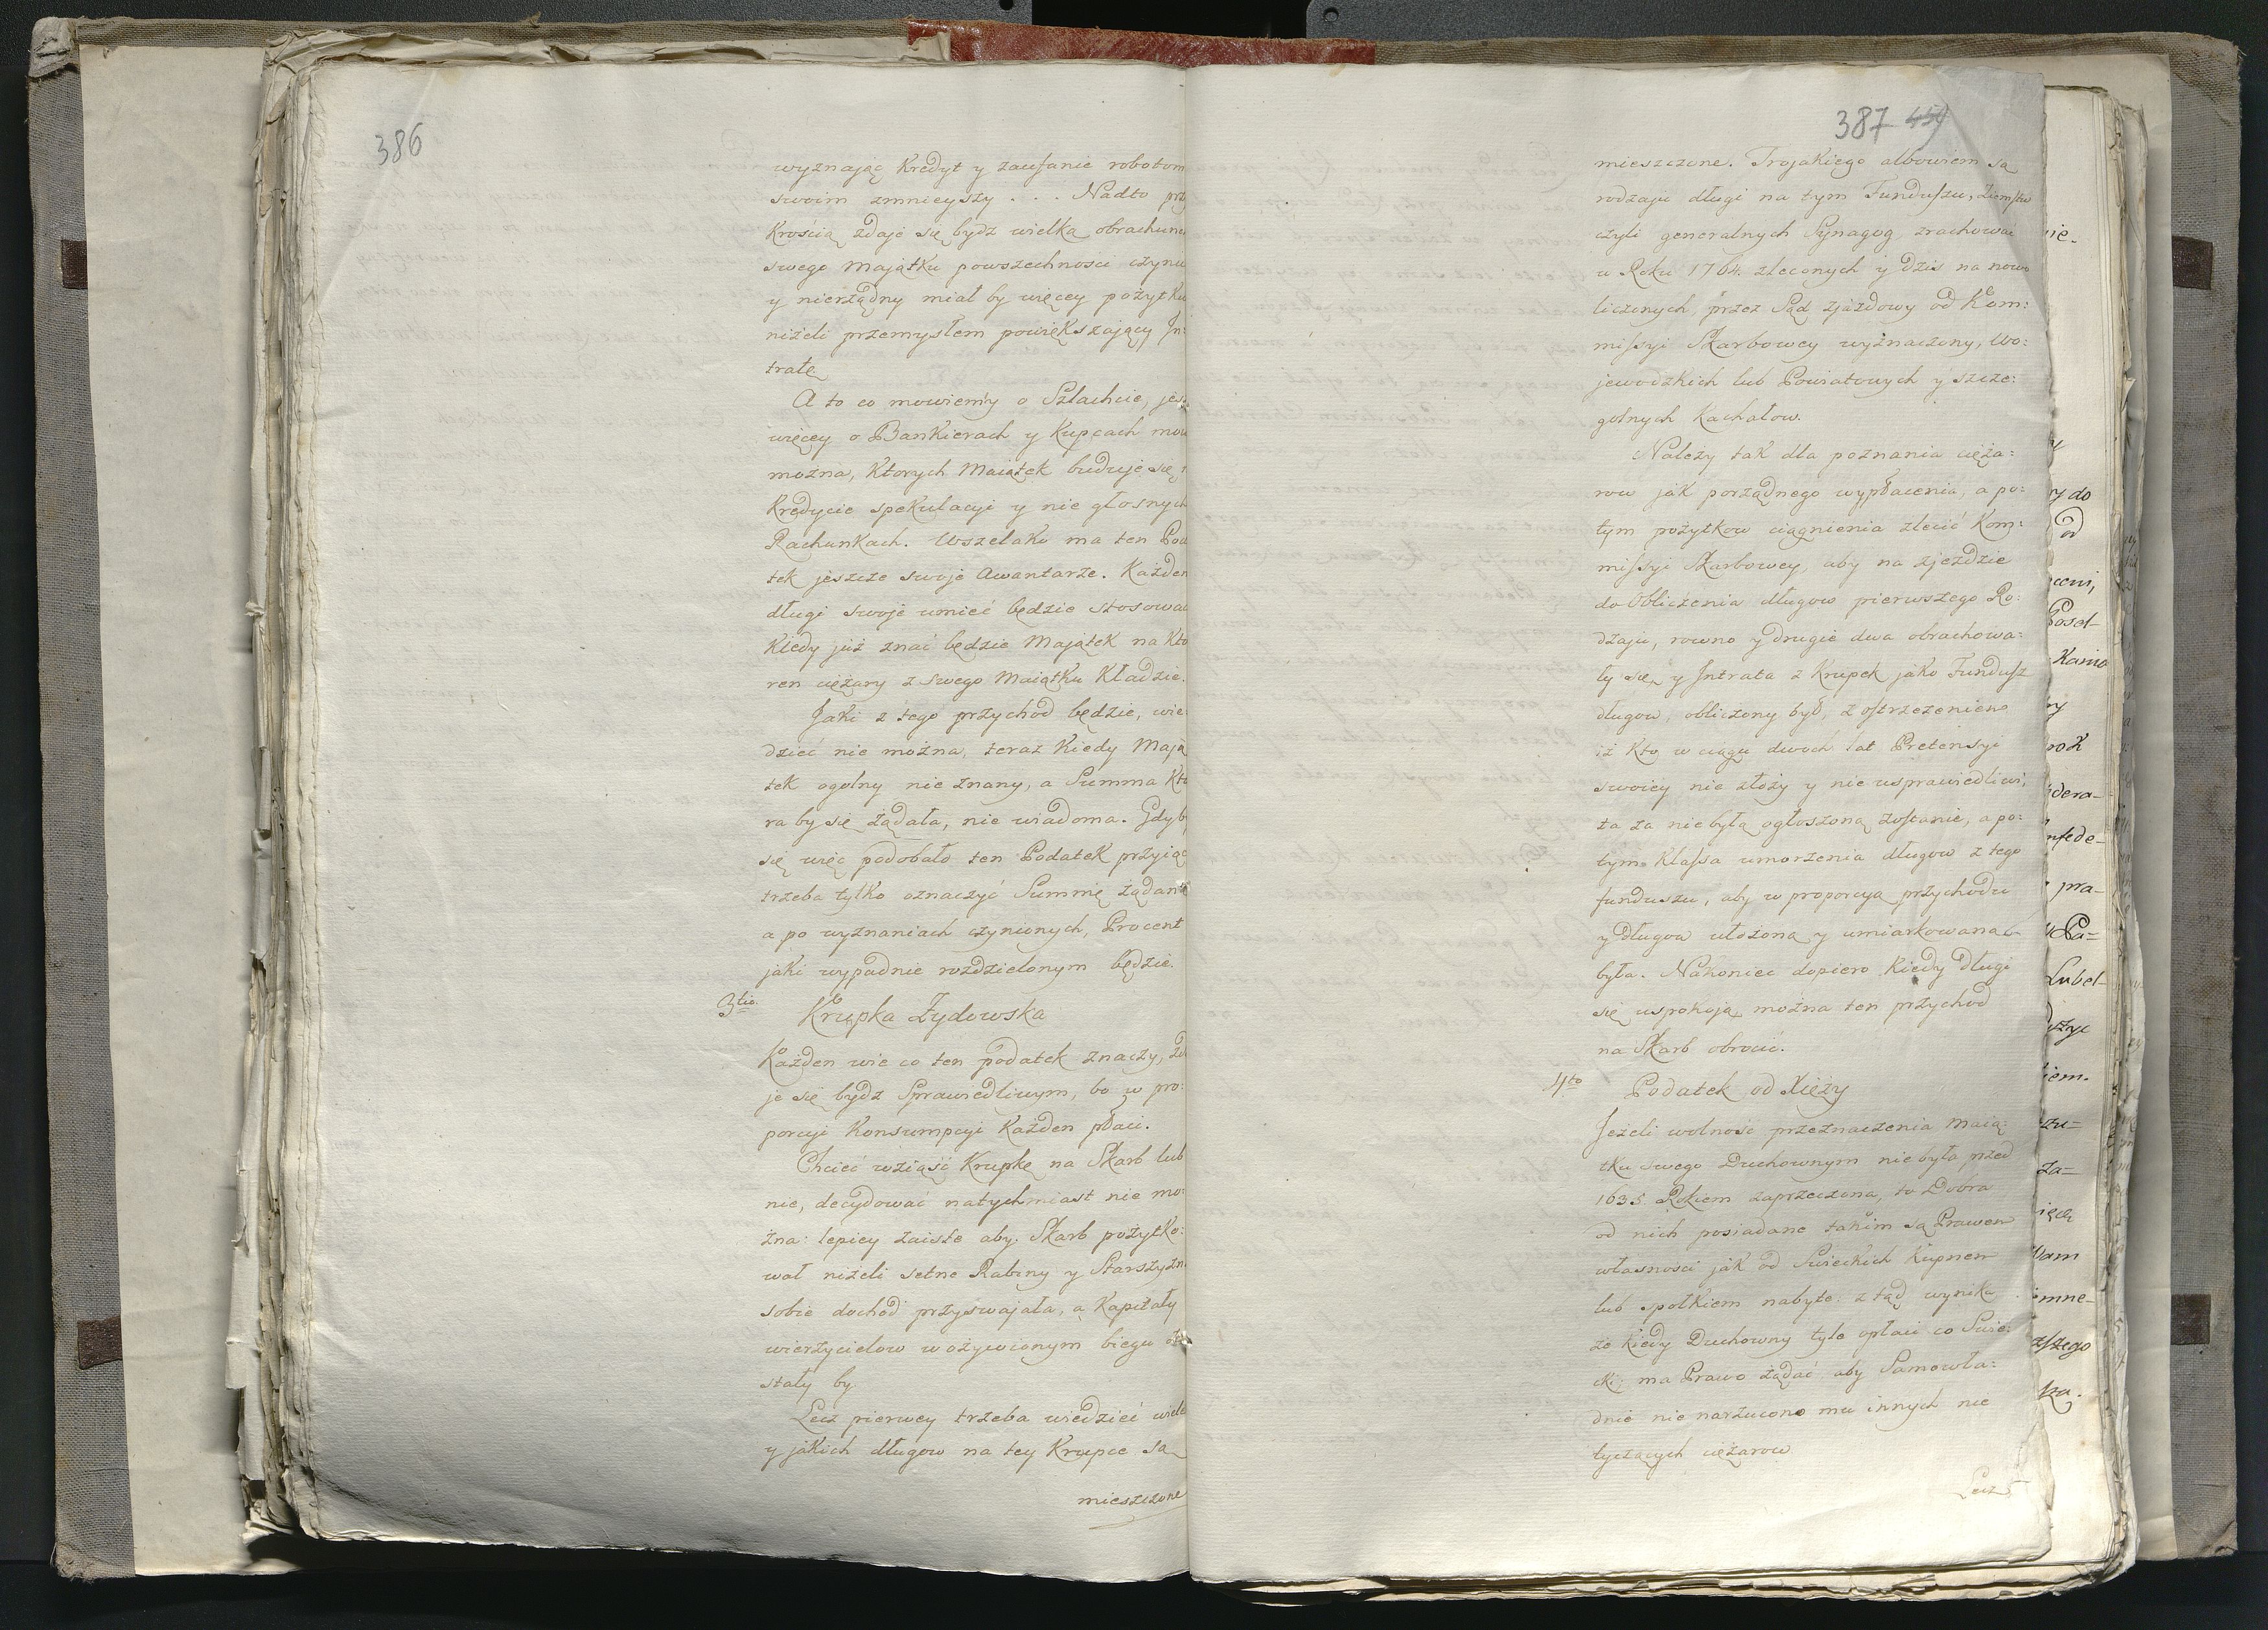 386
wyznając Kredyt y zaufanie robotom
swoim zmnieyszy . . . Nadto prz
Krością zdaje się bydz wielką obrachune
swego Majątku powszechnosci czynic
y nierządny miał by więcey pożytku
niżeli przemysłem powiększający In:
tratę
A to co mowiemy o Szlachcie, jes
więcey o Bankierach y Kupcach mow
mozna, Ktorych Maiątek buduje się
Kredycie spekulacyi y nie głosnych
Rachunkach. Wszelako ma ten Poda
tek jeszcze swoje Awantarze. Każden
długi swoje umieć będzie stosowac
Kiedy już znać będzie Majątek na Kto
ren ciężary z swego Maiątku Kładzie.
Jaki z tego przychod będzie, wie
dzieć nie można, teraz Kiedy Mają
tek ogolny nie znany, a Summa Kto
ra by się żądała, nie wiadoma. Gdyby
się więc podobało ten Podatek przyiąc
trzeba tylko oznaczyć Summę żądan
a po wyznaniach czynionych, Procent
jaki wypadnie rozdzielonym będzie.
3tio. Krupka Żydowska
Każden wie co ten podatek znaczy, zda
je się bydz Sprawiedliwym, bo w pro:
porcyi Konsumpcyi Każden płaci.
Chcieć wziąść Krupkę na Skarb lub
nie, decydować natychmiast nie mo:
żna: lepiey zaiste aby Skarb pożytko:
wał niżeli setne Rabiny y Starszyzn
sobie dochod przyswajała, a Kapitały
wierzycielow w ożywionym biegu
stały by.
Lecz pierwey trzeba wiedzieć wiele
y jakich długow na tey Krupce są
mieszczone
387 459
mieszczone. Trojakiego albowiem są
rodzaju długi na tym Funduszu, Ziemstw
czyli generalnych Synagog, zrachowac
w Roku 1764. zleconych y dzis na nowo
liczonych, przez Sąd zjazdowy od Kom:
missyi Skarbowey wyznaczony, Wo:
jewodzkich lub Powiatowych y szcze:
gulnych Kachałow.
Należy tak dla poznania cięża:
row jak porządnego wypłacenia, a po:
tym pożytkow ciągnienia zlecić Kom:
missyi Skarbowey, aby na zjezdzie
do Obliczenia długow pierwszego Ro:
dzaju, rowno y drugie dwa obrachowa:
ły się, y Intrata z Krupek jako Fundusz
długow, obliczony był, z ostrzezeniem
iż Kto w ciągu dwoch lat Pretensyi
swoiey nie złoży y nie usprawiedliwi,
ta za niebyłą ogłoszoną zostanie, a po:
tym Klassa umorzenia długow z tego
funduszu, aby w proporcyą przychodu
y Długow ułożona y umiarkowana
była. Nakoniec dopiero Kiedy Długi
się uspokoją, można ten przychod
na Skarb obrocić.
4to Podatek od Xięży
Jeżeli wolnosc przeznaczenia Maią:
tku swego Duchownym nie była przed
1635. Rokiem zaprzeczona, to Dobra
od nich posiadane takim są Prawem
własnosci jak od Swieckich Kupnem
lub spadkiem nabyte: z tąd wynika
że kiedy Duchowny tyle opłaci co Swie:
cki, ma Prawo żądać aby Samowła:
dnie nie narzucono mu innych nie
tyczących ciężarow
Lecz